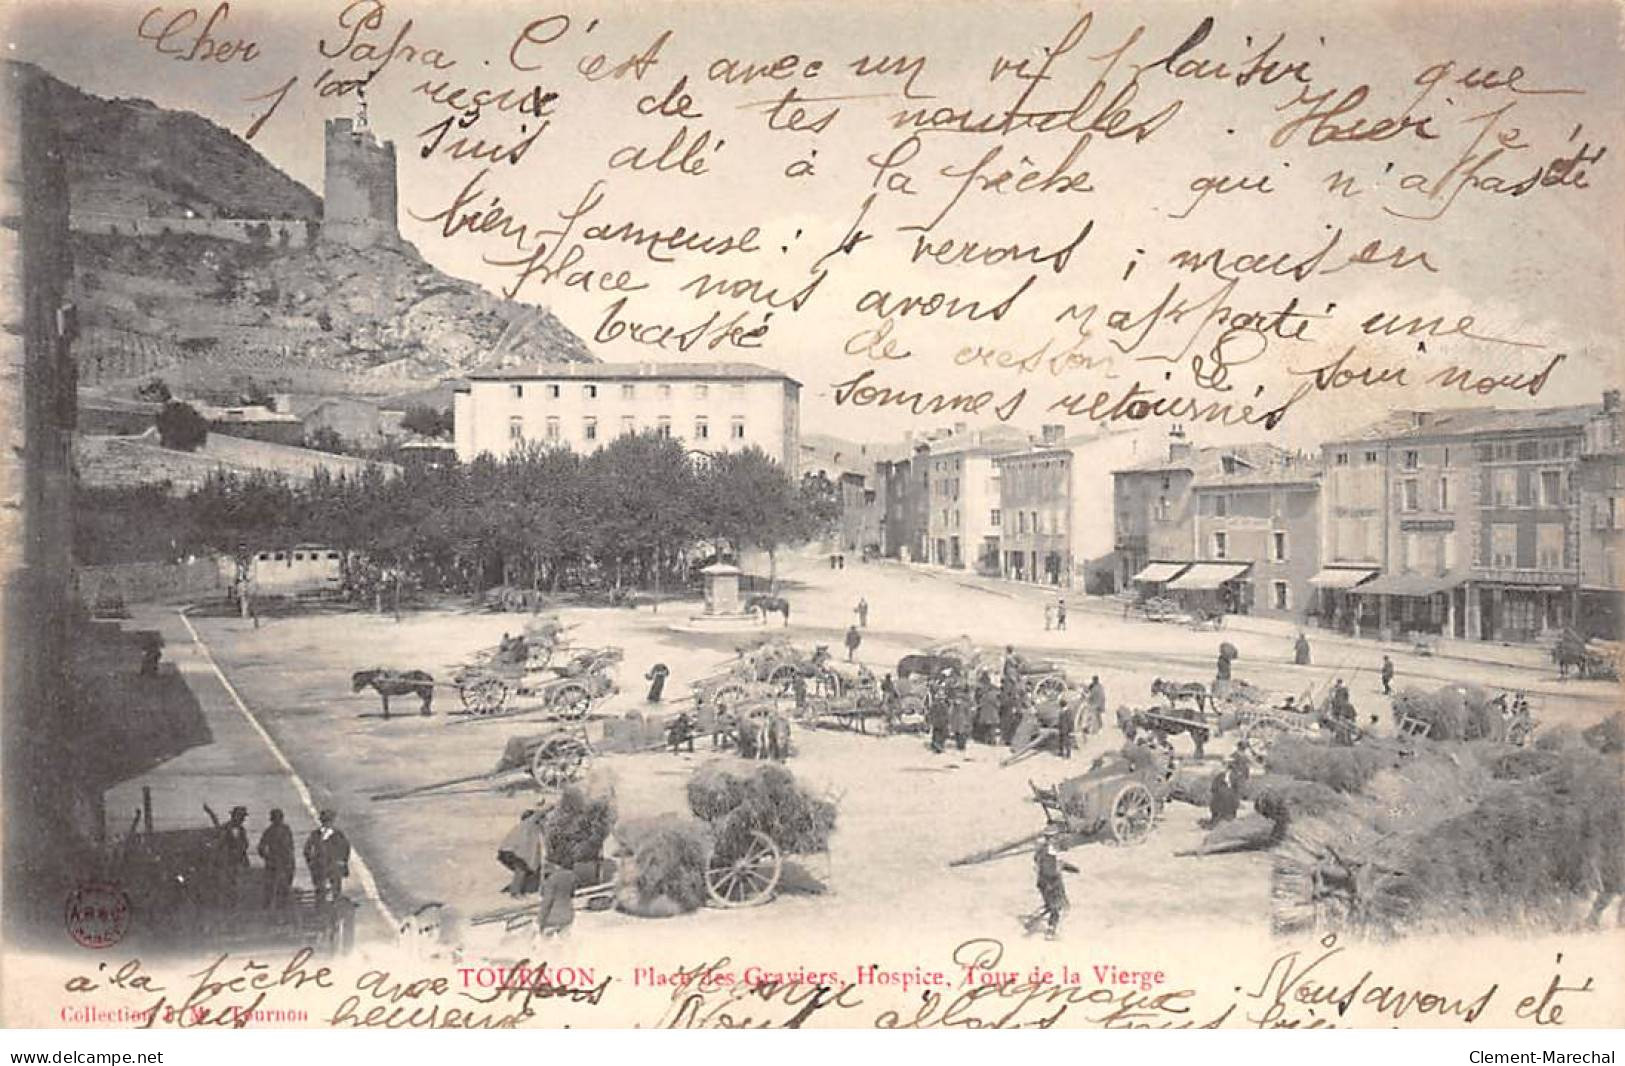 Cher Papa. C'est avec un vif plaisir que
j'ai reçue de tes nouvelles. Hier je
suis allé à la pêche qui n'a pas été
bien fameuse : 4 verons ; mais en
place nous avons rapporté une
brassée de cresson. Le soir nous
sommes retournés
à la pêche avec Mons Henri Pignoux. Nous avons été
TOURNON. - Place des Graviers, Hospice, Tour de la Vierge
plus heureux. Nous allons tous bien
Collection B. M. Tournon
delcampe.net
Clement-Marechal